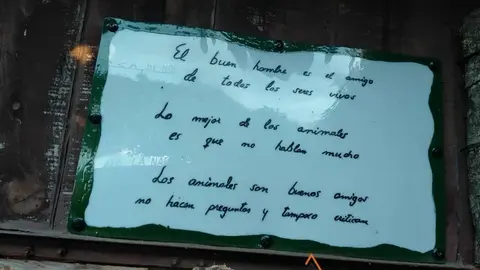 El buen hombre es el amigo
de todos los seres vivos
Lo mejor de los animales
es que no hablan mucho
Los animales son buenos amigos
no hacen preguntas y tampoco critican